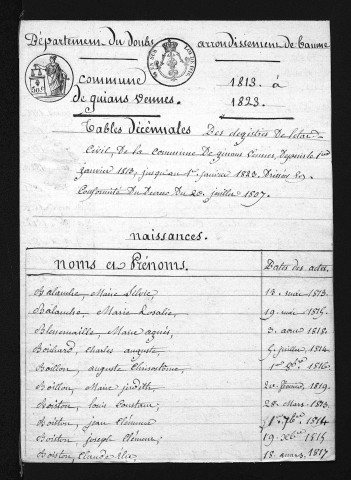 Département du doubs arrondissement de baume
commune 1813 à
de guians vennes. 1823.
Tables Décénnales Des Registres De létat
Civil, De la Commune De guians vennes, Depuis le 1er
janvier 1813, jusqu'au 1er janvier 1823. Dressées en
Conformité Du Décret Du 20 juillet 1807.
naissances.
noms et Prénoms. Dates des actes.
Balanche, Marie 13. mai 1813.
Balanche, Marie Rosalie 19. mai 1815.
Marie agnès, 3. aout 1818.
charles auguste, 5. juillet 1814.
Boillon, auguste Chrisostome, 1er 1816.
Boillon, Marie judith, 20. février 1819.
Boiston, louis Constant, 28. Mars 1813.
Boiston, jean Clémence 1er 7bre 1814
Boiston, joseph Clément, 19. Xbre 1815
Boiston, Claude 18. mars 1817